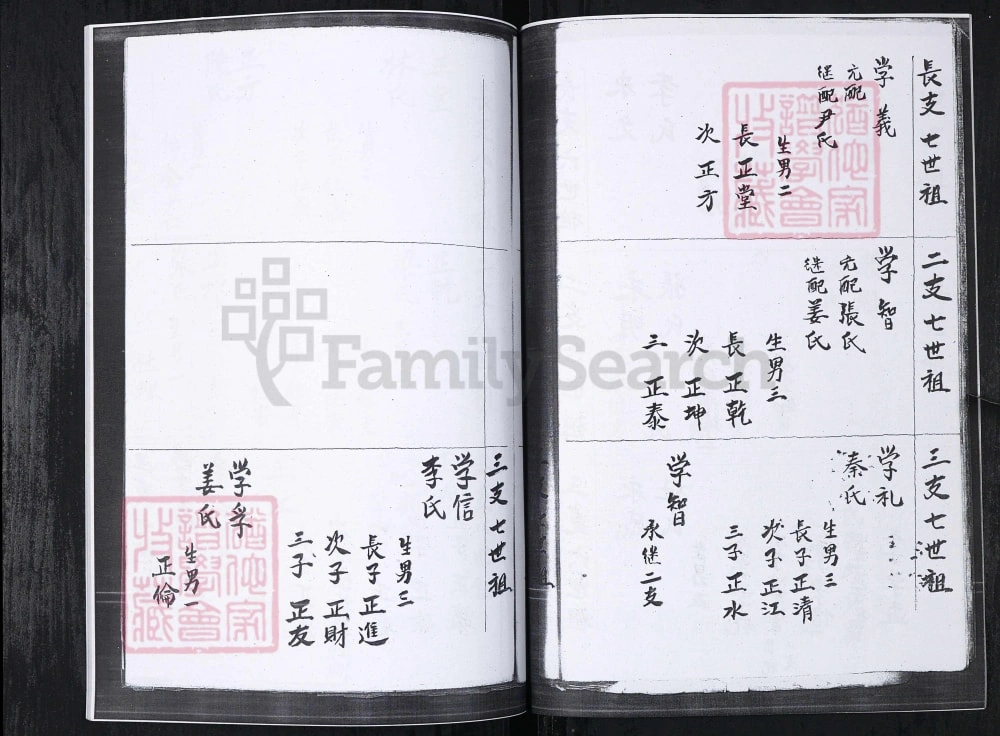 長支七世祖
学義
元配
継配尹氏
生男二
長正堂
次正方
二支七世祖
学智
元配張氏
継配姜氏
生男三
長正乾
次正坤
三正泰
三支七世祖
学礼
秦氏
生男三
長子正清
次子正江
三子正水
学智
承继二支
三支七世祖
学信
李氏
生男三
長子正進
次子正財
三子正友
学孚
姜氏
生男一
正倫
FamilySearch